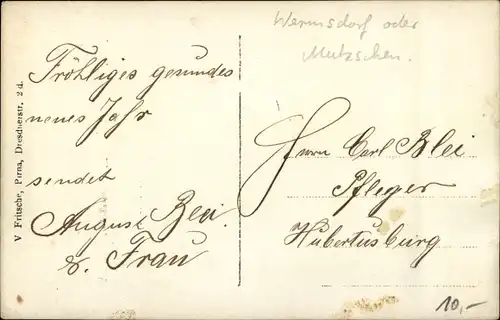 Wermsdorf oder
Mutzschen.
V Fritsche, Pirna, Drescherstr. 2 d.
Fröhliges gesundes
neues Jahr
sendet
August Blei.
& Frau
Herrn Carl Blei
Pfleger
Hubertusburg
10,-